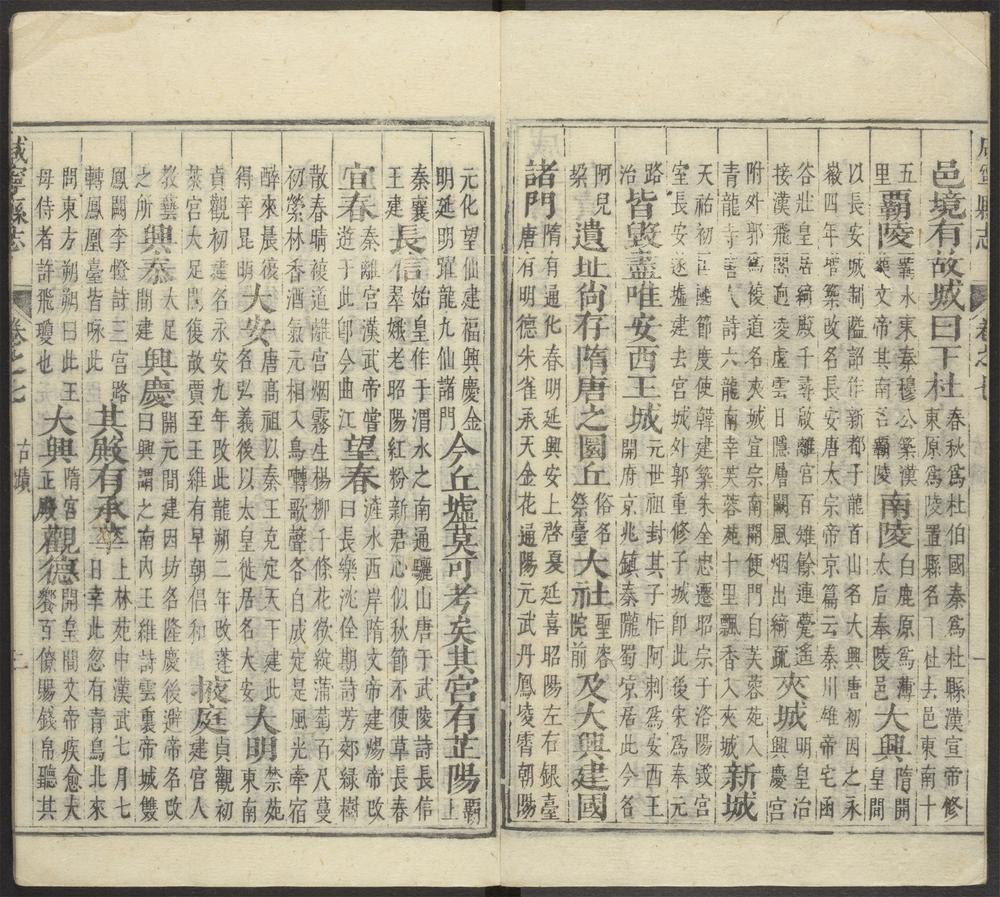 咸寧縣志 卷之七 一
邑境有故城曰下杜春秋為杜伯國秦為杜縣漢宣帝修東原為陵置縣名下杜去邑東南十
五里霸陵霸水東秦穆公築漢文帝其南名霸陵南陵白鹿原為薄太后奉陵邑大興隋開皇間
以長安城制隘詔作新都于龍首山名大興唐初因之永徽四年增築改名長安唐太宗帝京篇云秦川雄帝宅函
谷壯皇居綺殿千尋啟離宮百雉餘連甍遙接漢飛閣迥凌虛雲日隱層闕風烟出綺疏夾城明皇治興慶宮
附外郭為複道名夾城宣宗南開便門自芙蓉苑入青龍寺人詩六龍南幸芙蓉苑十里飄香入夾城新城
天祐初匡國節度使韓建築朱全忠遷昭宗于洛陽毀宮室長安遂墟建去宮城外郭重修子城即此後宋為奉元
路治皆毀盡唯安西王城元世祖封其子忙阿刺為安西王開府京兆鎮秦隴蜀凉居此今名
阿兒遺址尚存隋唐之圜丘俗名祭臺大社聖容院前及大興建國
諸門隋有通化春明延興安上啓夏延喜昭陽左右銀臺唐有明德朱雀承天金花通陽元武丹鳳凌霄朝陽
元化望仙建福興慶金明延明躍龍九仙諸門今丘墟莫可考矣其宮有芷陽霸上
秦襄王建長信始皇作于渭水之南通驪山唐于武陵詩長信翠娥老昭陽紅粉新君心似秋節不使草長春
宜春秦離宮漢武帝嘗遊于此卽今曲江望春滻水西岸隋文帝建煬帝改曰長樂沈佺期詩芳郊綠樹
散春晴複道離宮烟霧生楊柳千條花欲綻蒲萄百尺蔓初縈林香酒氣元相入鳥囀歌聲各自成定是風光牽宿
醉來晨復得幸昆明大安唐高祖以秦王克定天下建此名弘義後以太皇徙居名大安大明禁苑東南
貞觀初建名永安九年改此龍朔二年改蓬萊宮大足間復故賈至王維有早朝倡和掖庭貞觀初建宮人
教藝之所興泰大足間建興慶開元間建因坊名隆慶後避帝名改曰興謂之南內王維詩雲裏帝城雙
鳳闕李憕詩三宮路轉鳳凰臺皆咏此其殿有承華上林苑中漢武七月七日幸此忽有青鳥北來
問東方朔朔曰此王母侍者許飛瓊也大興隋宮正殿觀德開皇間文帝疾愈大饗百僚賜錢帛聽其
咸寧縣志 卷之七 古蹟 二